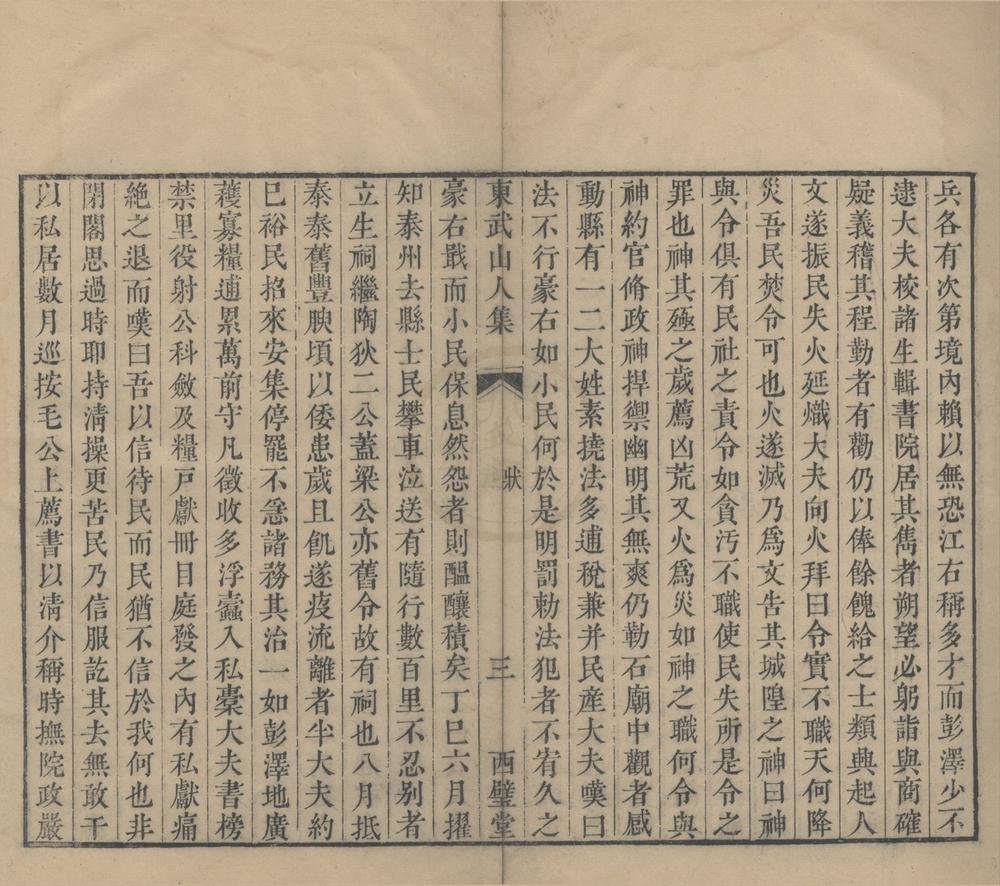 兵各有次第境內賴以無恐江右稱多才而彭澤少不
逮大夫校諸生輯書院居其雋者朔望必躬詣與商確
疑義稽其程勤者有勸仍以俸餘餽給之士類興起人
文遂振民失火延熾大夫向火拜曰令實不職天何降
災吾民焚令可也火遂滅乃爲文告其城隍之神曰神
與令俱有民社之責令如貪汚不職使民失所是令之
罪也神其殛之歲薦凶荒又火爲災如神之職何令與
神約官脩政神捍禦幽明其無爽仍勒石廟中觀者感
動縣有一二大姓素撓法多逋稅兼并民產大夫嘆曰
法不行豪右如小民何於是明罰勅法犯者不宥久之
東武山人集 狀 三 西璧堂
豪右戢而小民保息然怨者則醞釀積矣丁巳六月擢
知泰州去縣士民攀車泣送有隨行數百里不忍别者
立生祠繼陶狄二公蓋梁公亦舊令故有祠也八月抵
泰泰舊豐腴頃以倭患歲且飢遂疲流離者半大夫約
已裕民招來安集停罷不急諸務其治一如彭澤地廣
蓻寡糧逋累萬前守凡徵收多浮蠹入私橐大夫書榜
禁里役射公科斂及糧戶獻冊目庭發之內有私獻痛
絶之退而嘆曰吾以信待民而民猶不信於我何也非
閉閣思過時耶持清操更苦民乃信服訖其去無敢干
以私居數月巡按毛公上薦書以清介稱時撫院政嚴